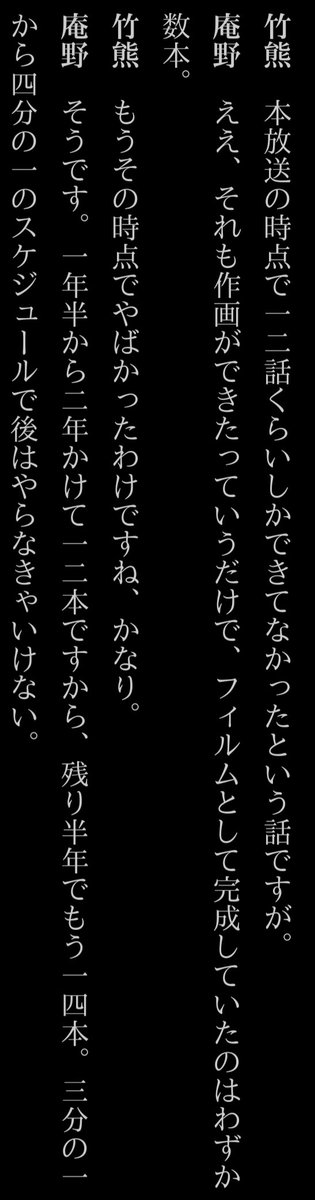 竹熊　本放送の時点で一二話くらいしかできてなかったという話ですが。
庵野　ええ、それも作画ができたっていうだけで、フィルムとして完成していたのはわずか
数本。
竹熊　もうその時点でやばかったわけですね、かなり。
庵野　そうです。一年半から二年かけて一二本ですから、残り半年でもう一四本。三分の一
から四分の一のスケジュールで後はやらなきゃいけない。